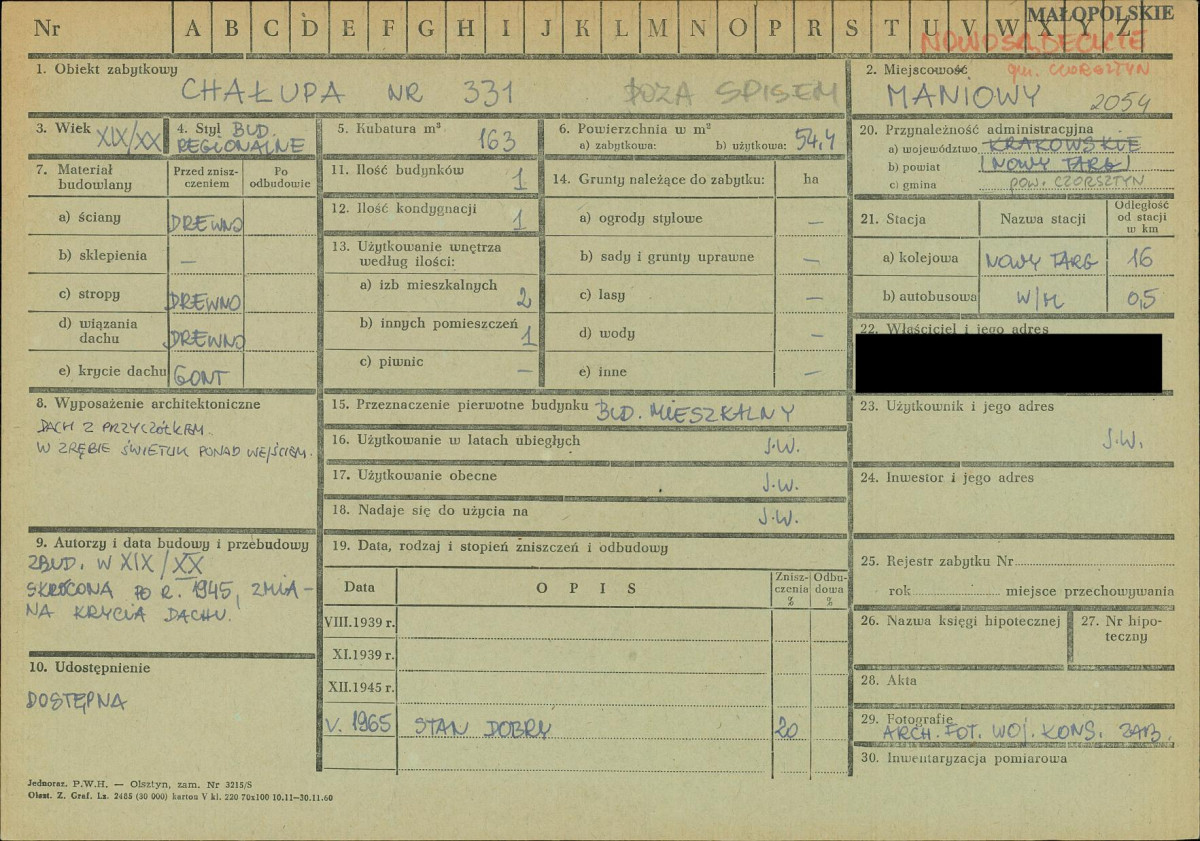 Nr A B C D E F G H I J K L M N O P R S T U V W X Y Z
MAŁOPOLSKIE
NOWOSĄDECKIE
gm. CZORSZTYN
1. Obiekt zabytkowy
CHAŁUPA NR 331 POZA SPISEM
2. Miejscowość
MANIOWY 2054
3. Wiek XIX/XX
4. Styl BUD. REGIONALNE
5. Kubatura m³ 163
6. Powierzchnia w m²
a) zabytkowa: b) użytkowa: 54,4
20. Przynależność administracyjna
a) województwo KRAKOWSKIE
b) powiat (NOWY TARG)
c) gmina POW. CZORSZTYN
7. Materiał budowlany
Przed zniszczeniem
Po odbudowie
a) ściany DREWNO
b) sklepienia —
c) stropy DREWNO
d) wiązania dachu DREWNO
e) krycie dachu GONT
11. Ilość budynków 1
12. Ilość kondygnacji 1
13. Użytkowanie wnętrza według ilości:
a) izb mieszkalnych 2
b) innych pomieszczeń 1
c) piwnic —
14. Grunty należące do zabytku: ha
a) ogrody stylowe —
b) sady i grunty uprawne —
c) lasy —
d) wody —
e) inne —
21. Stacja Nazwa stacji Odległość od stacji w km
a) kolejowa NOWY TARG 16
b) autobusowa W/M 0,5
22. Właściciel i jego adres
8. Wyposażenie architektoniczne
DACH Z PRZYCZÓŁKIEM.
W ZRĘBIE ŚWIETLIK PONAD WEJŚCIEM.
15. Przeznaczenie pierwotne budynku BUD. MIESZKALNY
16. Użytkowanie w latach ubiegłych J.W.
17. Użytkowanie obecne J.W.
18. Nadaje się do użycia na J.W.
23. Użytkownik i jego adres
J.W.
24. Inwestor i jego adres
9. Autorzy i data budowy i przebudowy
ZBUD. W XIX/XX
SKRÓCONA PO R. 1945, ZMIA-
NA KRYCIA DACHU.
10. Udostępnienie
DOSTĘPNA
19. Data, rodzaj i stopień zniszczeń i odbudowy
Data OPIS Zniszczenia % Odbudowa %
VIII.1939 r.
XI.1939 r.
XII.1945 r.
V. 1965 STAN DOBRY 20
25. Rejestr zabytku Nr
rok miejsce przechowywania
26. Nazwa księgi hipotecznej
27. Nr hipoteczny
28. Akta
29. Fotografie
ARCH. FOT. WOJ. KONS. ZAB.
30. Inwentaryzacja pomiarowa
Jednoraz. P.W.H. — Olsztyn, zam. Nr 3215/S
Olszt. Z. Graf. Lz. 2485 (30 000) karton V kl. 220 70x100 10.11—30.11.60